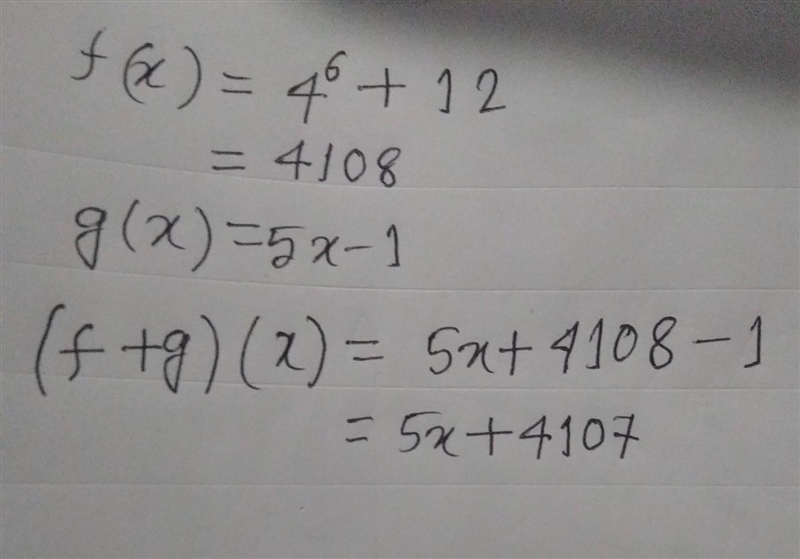 f(x) = 4⁶ + 12
= 4108
g(x) = 5x - 1
(f + g)(x) = 5x + 4108 - 1
= 5x + 4107